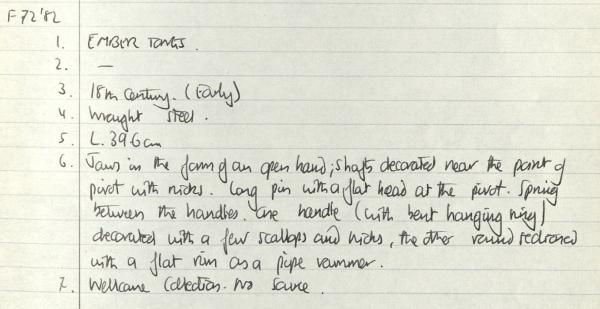 F72'82
1. EMBER TONGS.
2. —
3. 18th Century. (Early)
4. Wrought steel.
5. L. 39.6cm
6. Jaws in the form of an open hand; shafts decorated near the point of
pivot with nicks. Long pin with a flat head at the pivot. Spring
between the handles. One handle (with bent hanging ring)
decorated with a few scallops and nicks, the other round sectioned
with a flat rim as a pipe rammer.
7. Wellcome Collection. No source.